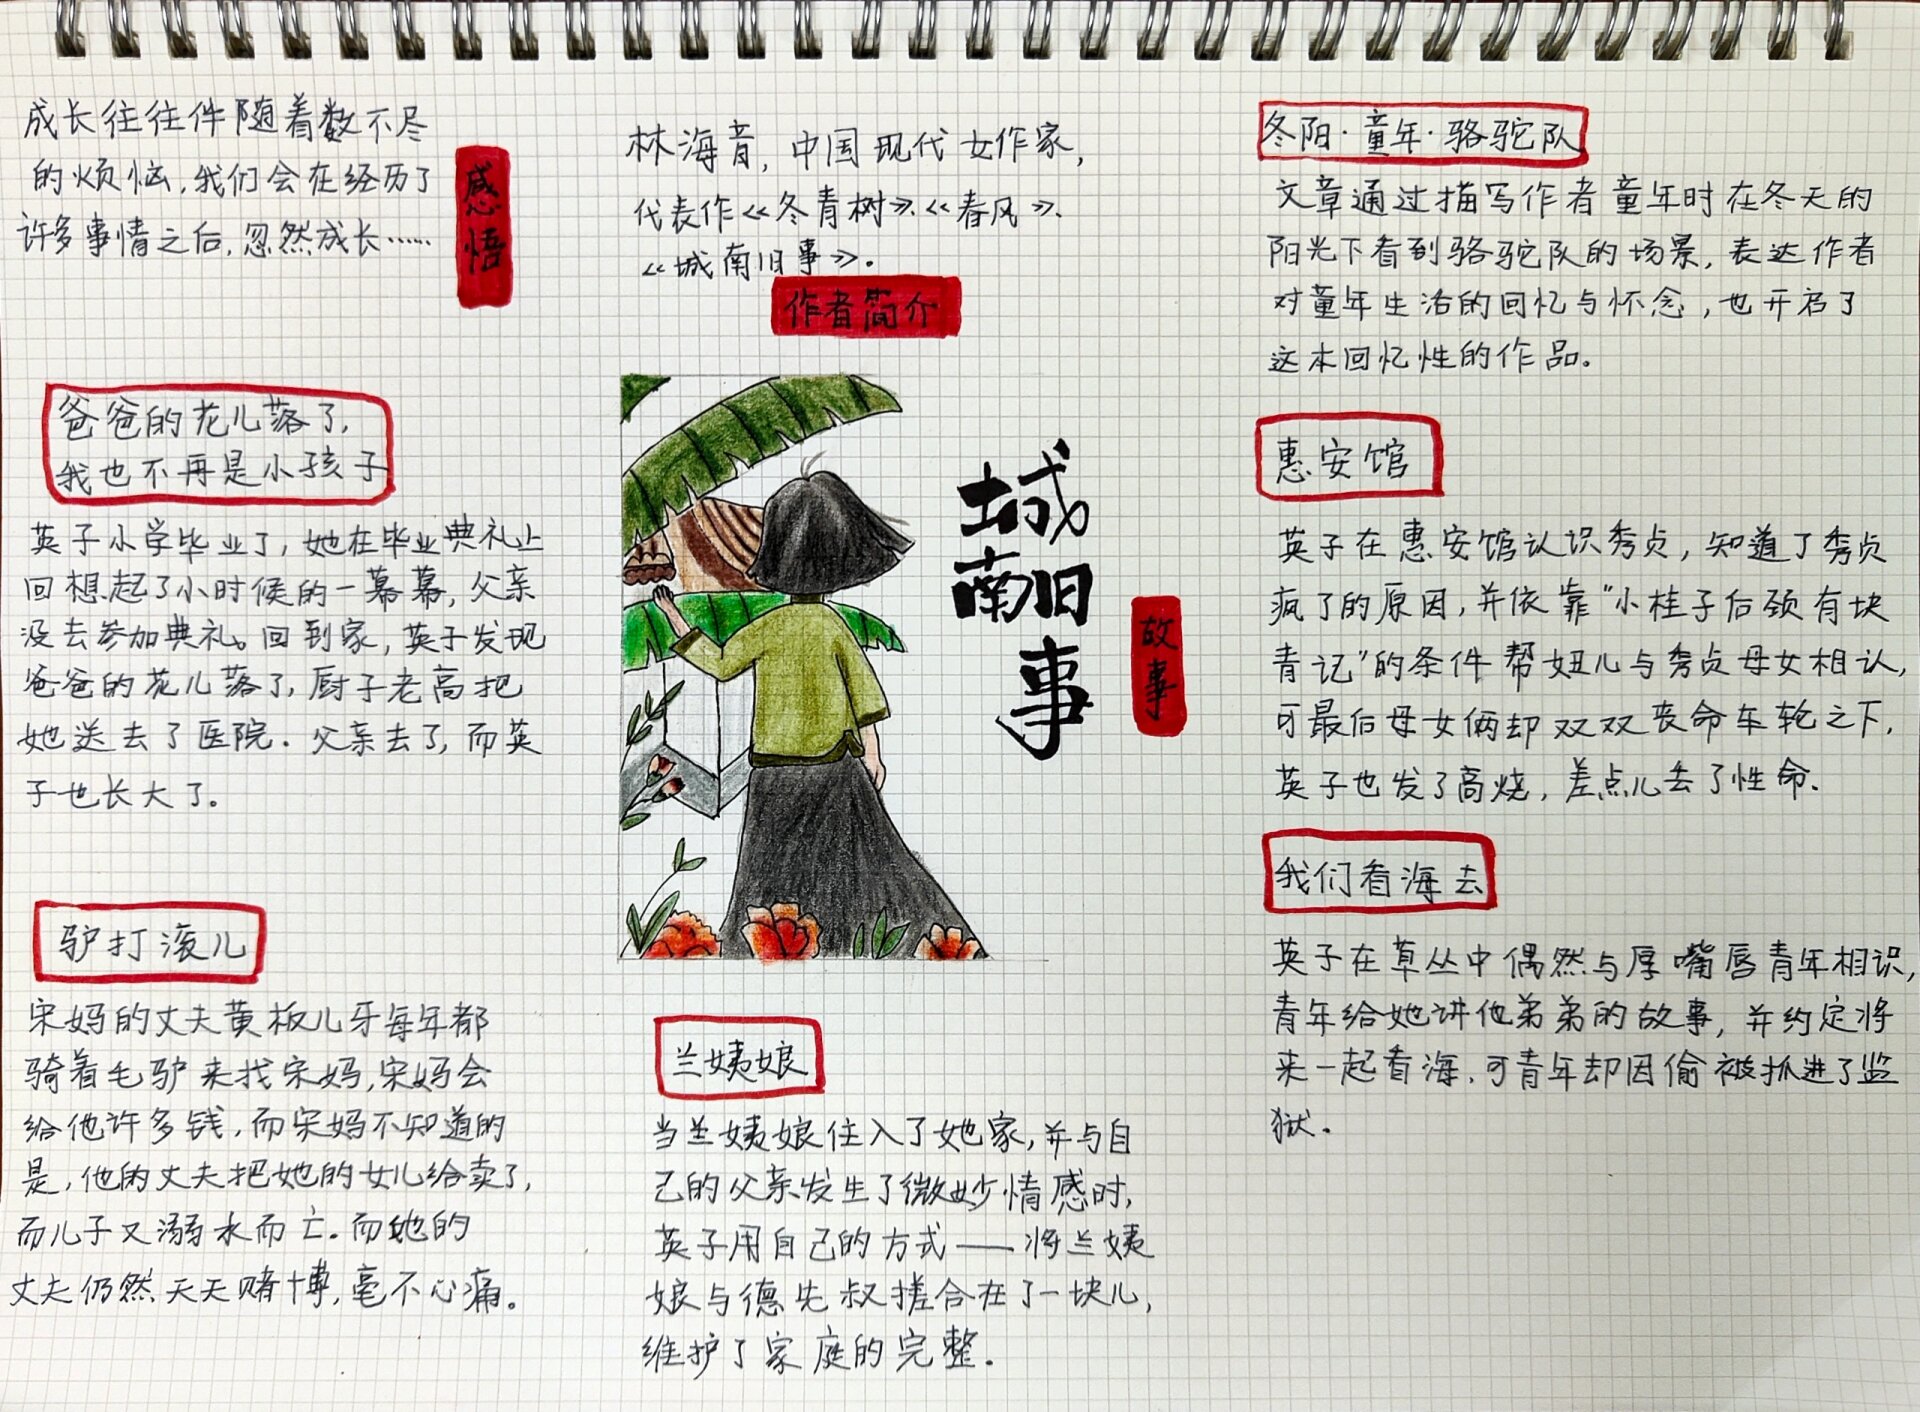 成长往往件随着数不尽
的烦恼,我们会在经历了
许多事情之后,忽然成长……
感悟
林海音,中国现代女作家,
代表作《冬青树》、《春风》、
《城南旧事》.
作者简介
城南旧事
故事
冬阳·童年·骆驼队
文章通过描写作者童年时在冬天的
阳光下看到骆驼队的场景,表达作者
对童年生活的回忆与怀念,也开启了
这本回忆性的作品。
惠安馆
英子在惠安馆认识秀贞,知道了秀贞
疯了的原因,并依靠"小桂子后颈有块
青记"的条件帮妞儿与秀贞母女相认,
可最后母女俩却双双丧命车轮之下,
英子也发了高烧,差点儿去了性命.
我们看海去
英子在草丛中偶然与厚嘴唇青年相识,
青年给她讲他弟弟的故事,并约定将
来一起看海.可青年却因偷被抓进了监
狱.
兰姨娘
当兰姨娘住入了她家,并与自
己的父亲发生了微妙情感时,
英子用自己的方式——将兰姨
娘与德先叔搓合在了一块儿,
维护了家庭的完整.
爸爸的花儿落了,
我也不再是小孩子
英子小学毕业了,她在毕业典礼上
回想起了小时候的一幕幕,父亲
没去参加典礼。回到家,英子发现
爸爸的花儿落了,厨子老高把
她送去了医院.父亲去了,而英
子也长大了.
驴打滚儿
宋妈的丈夫黄板儿牙每年都
骑着毛驴来找宋妈,宋妈会
给他许多钱,而宋妈不知道的
是,他的丈夫把她的女儿给卖了,
而儿子又溺水而亡.而她的
丈夫仍然天天赌博,毫不心痛。